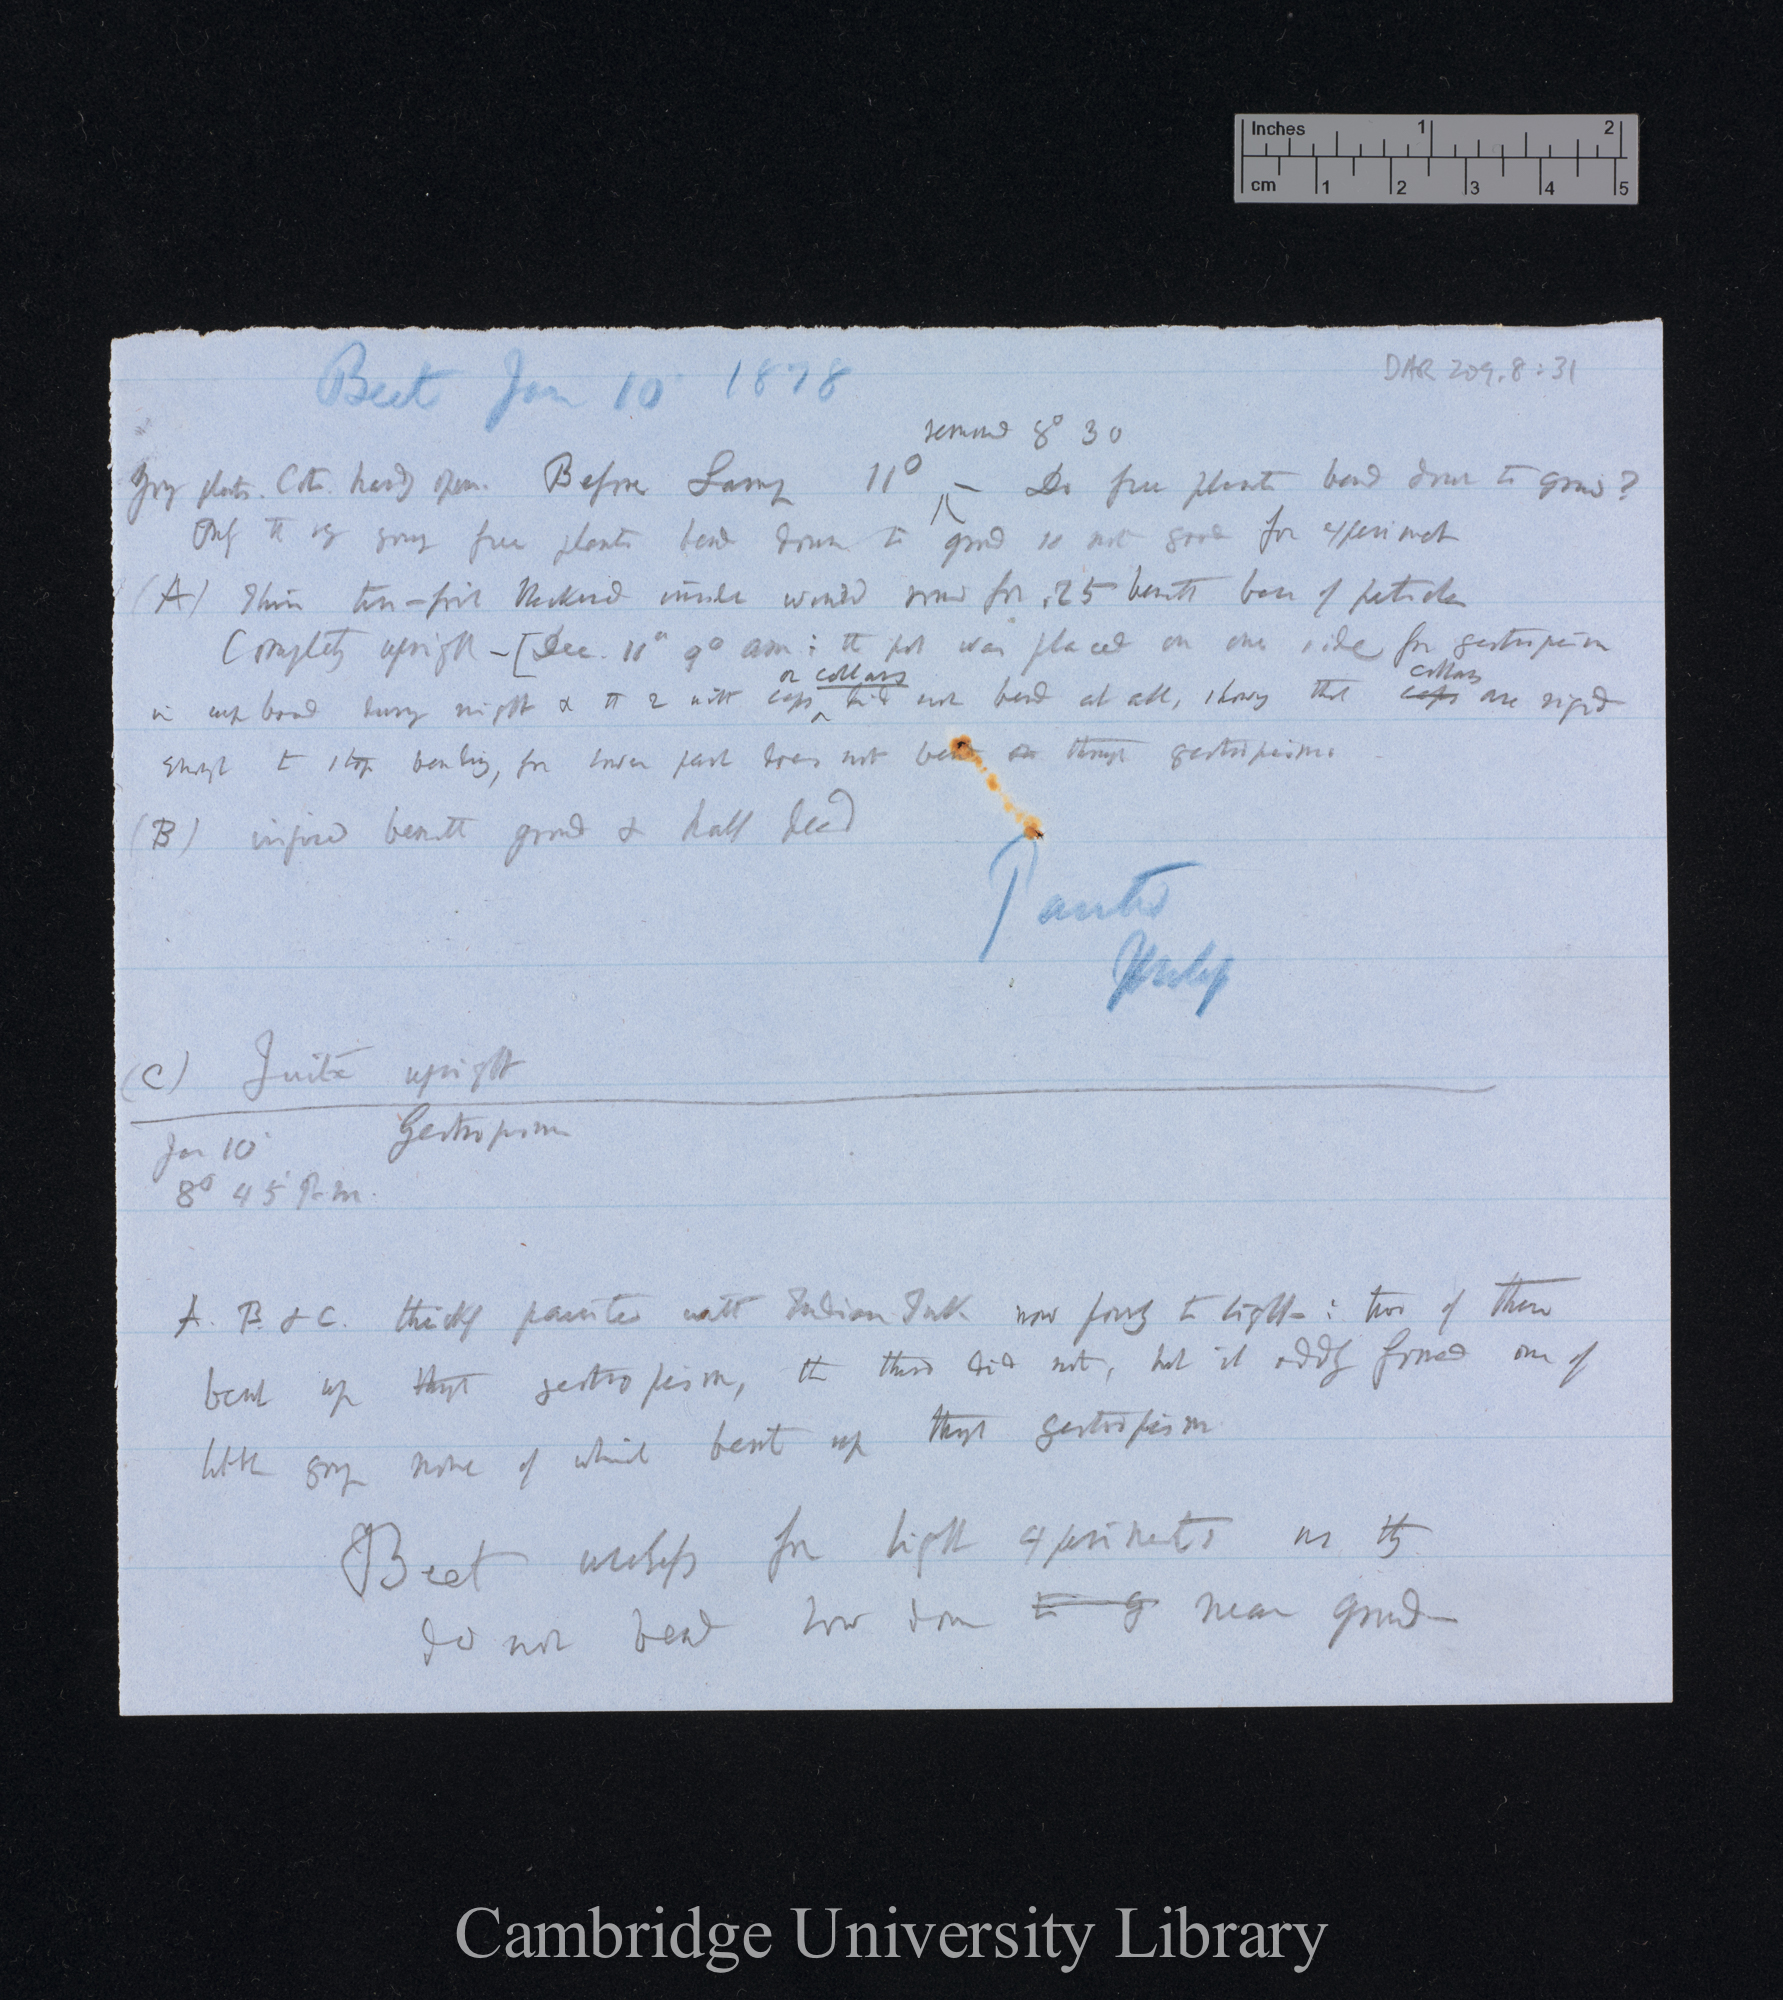 Inches 1 2
cm 1 2 3 4 5
Beet Jan 10 1878
DAR 209.8:31
removed 8° 30
plants. Cots. hardly open. Before Lamp 11° – Do free plants bend down to ground?
Only the young free plants bend down to ground so not good for experiment
(A) Thin tin-foil blackened inside wound round for .25 beneath base of petioles
Completely upright – [Dec. 11° 9° am: the pot was placed on one side for geotropism
or collars collars
in cupboard during night & the 2 with caps did not bend at all, shows that caps are rigid
enough to stop bending, for lower part does not bend through geotropism.
(B) injured beneath ground & half dead
Painted
(C) Quite upright
Geotropism
Jan 10
8° 45' P.m.
A. B. & C. thickly painted with Indian Ink now fairly to light: two of them
bent up through geotropism, the third did not, but it oddly formed one of
little group none of which bent up through geotropism
Beet useless for light experiments as they
do not bend low down near ground
Cambridge University Library